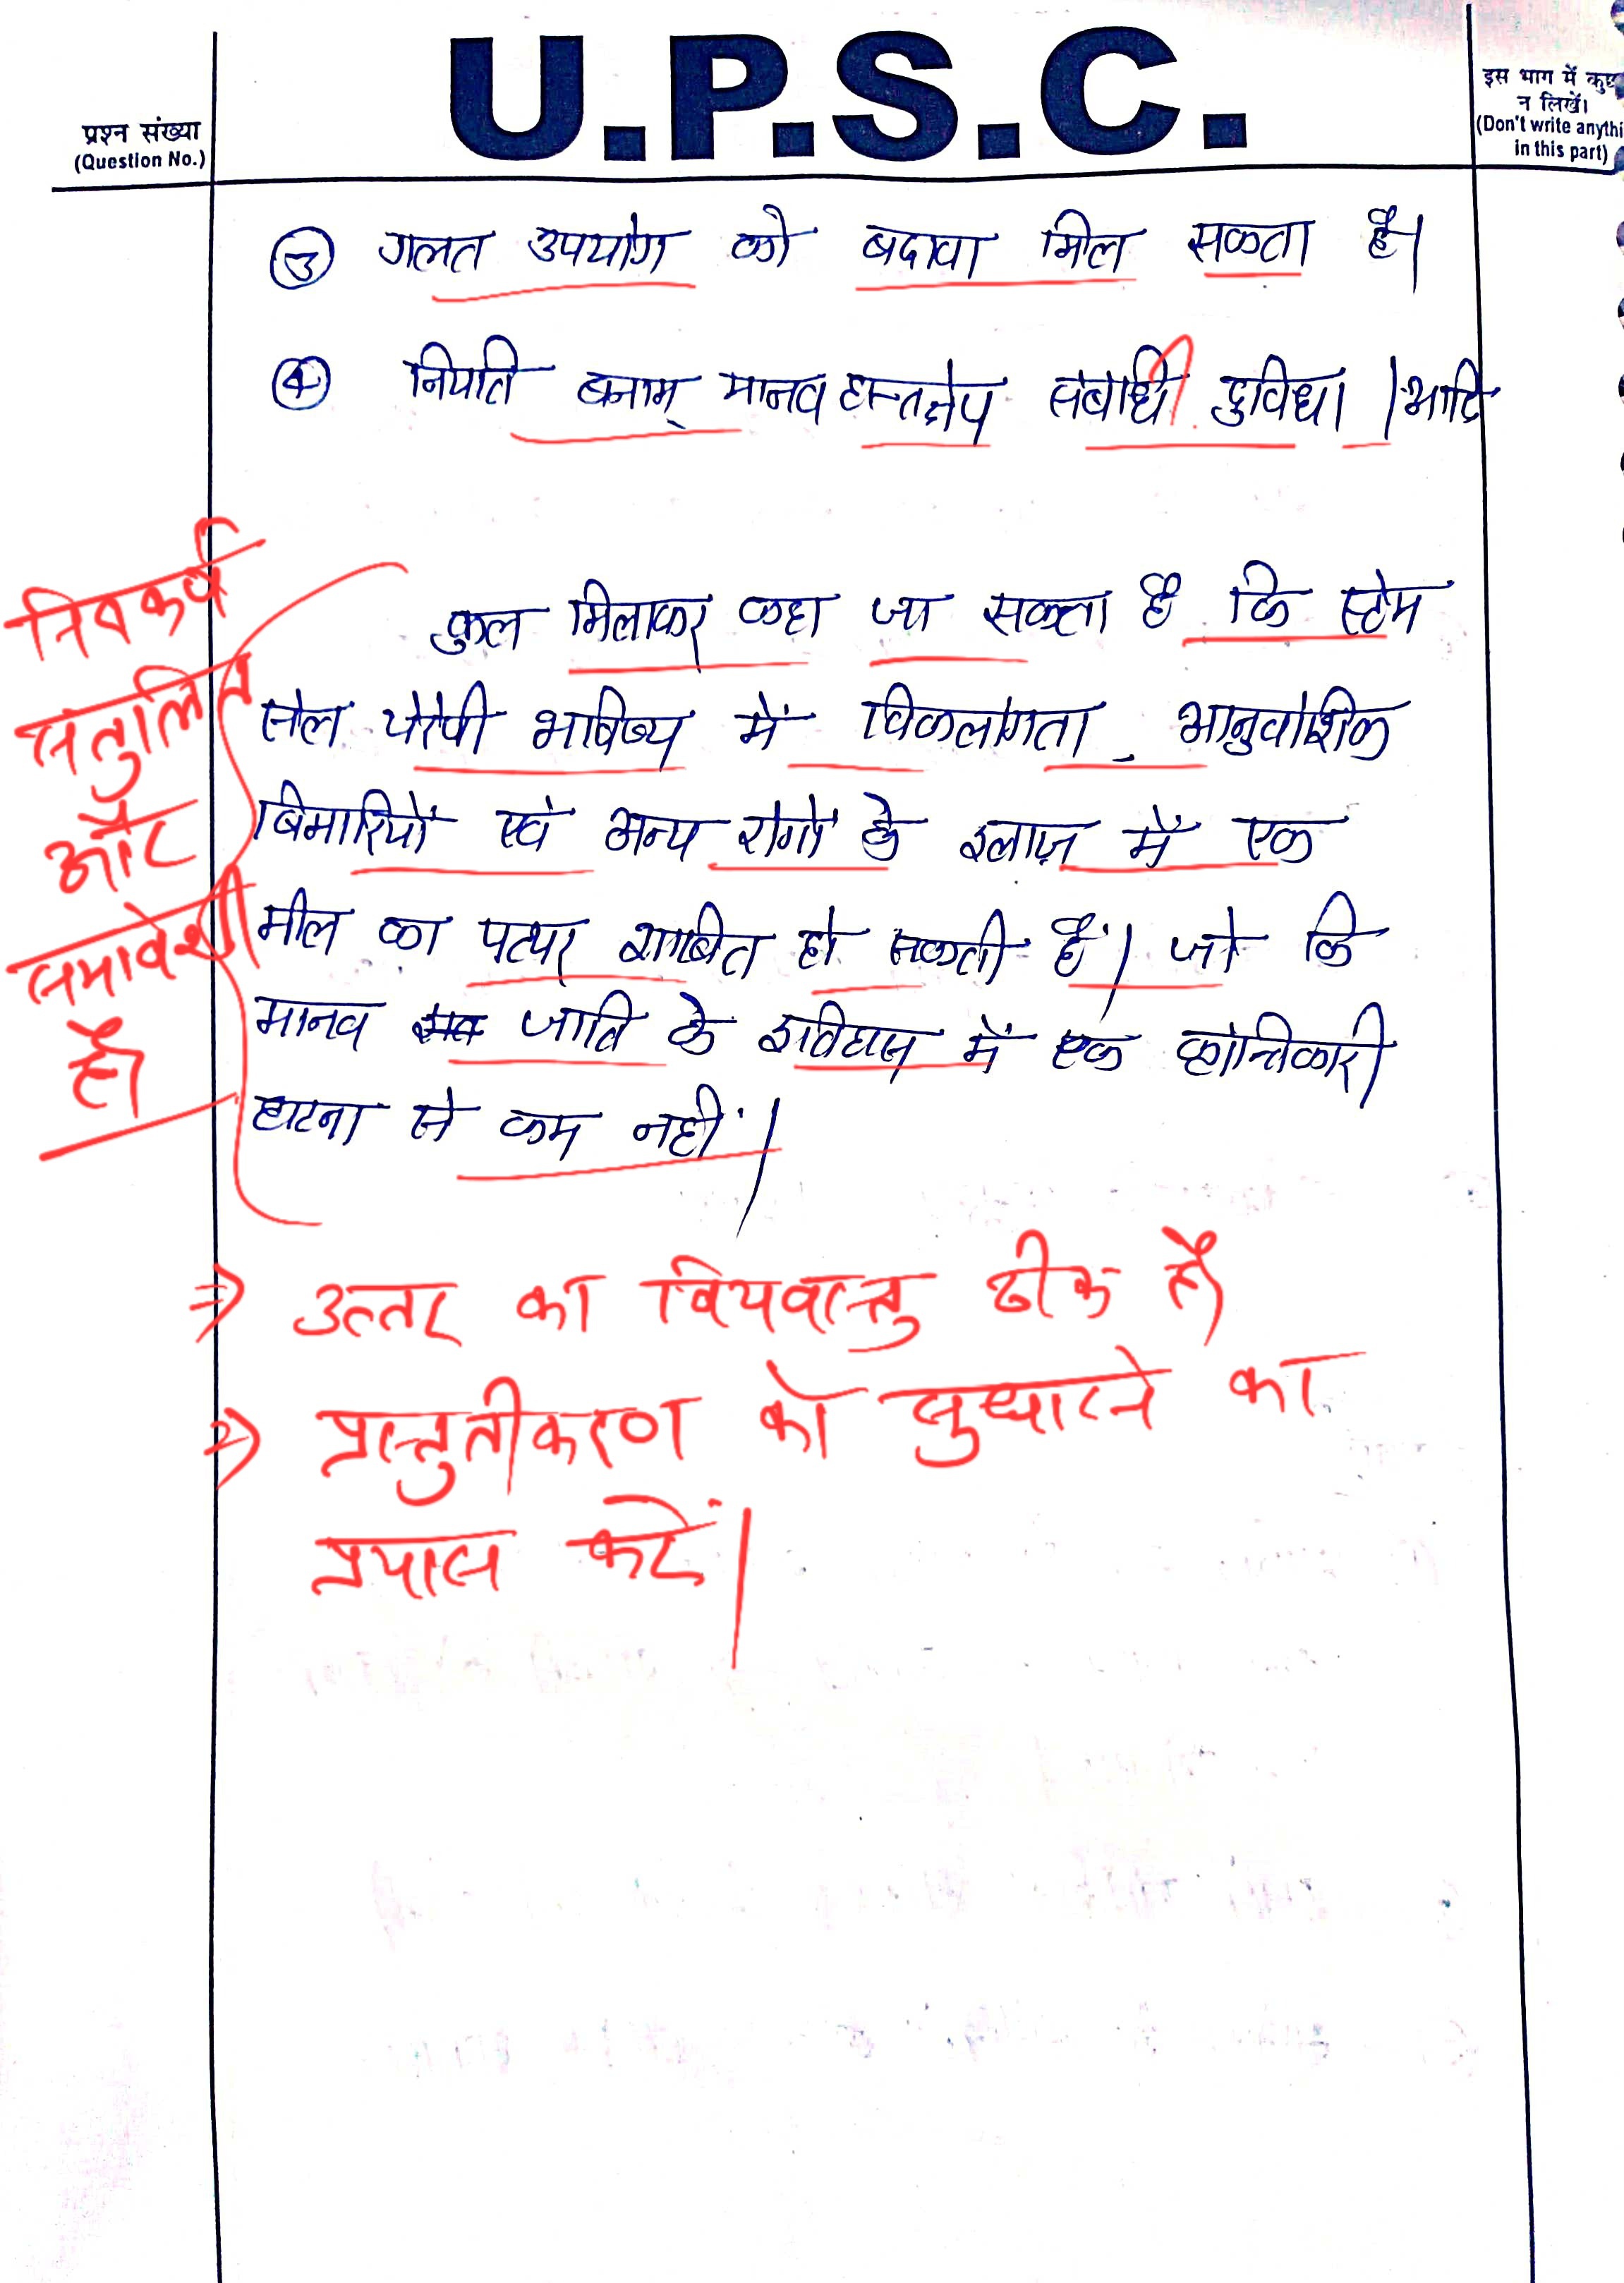 U.P.S.C.
प्रश्न संख्या
(Question No.)
इस भाग में कुछ
न लिखें।
(Don't write anythi
in this part)
③ गलत उपयोग को बढावा मिल सकता है।
④ नियति बनाम् मानव हस्तक्षेप संबंधी दुविधा। आदि
कुल मिलाकर कहा जा सकता है कि स्टेम
सेल थेरेपी भविष्य में विकलांगता, आनुवांशिक
बिमारियों एवं अन्य रोगों के इलाज़ में एक
मील का पत्थर शाबित हो सकती है। जो कि
मानव जाति के इतिहास में एक क्रान्तिकारी
घटना से कम नहीं।
निष्कर्ष
संतुलित
और
समावेशी
है।
⇒ उत्तर का विषयवस्तु ठीक है।
⇒ प्रस्तुतीकरण को सुधारने का
प्रयास करें।